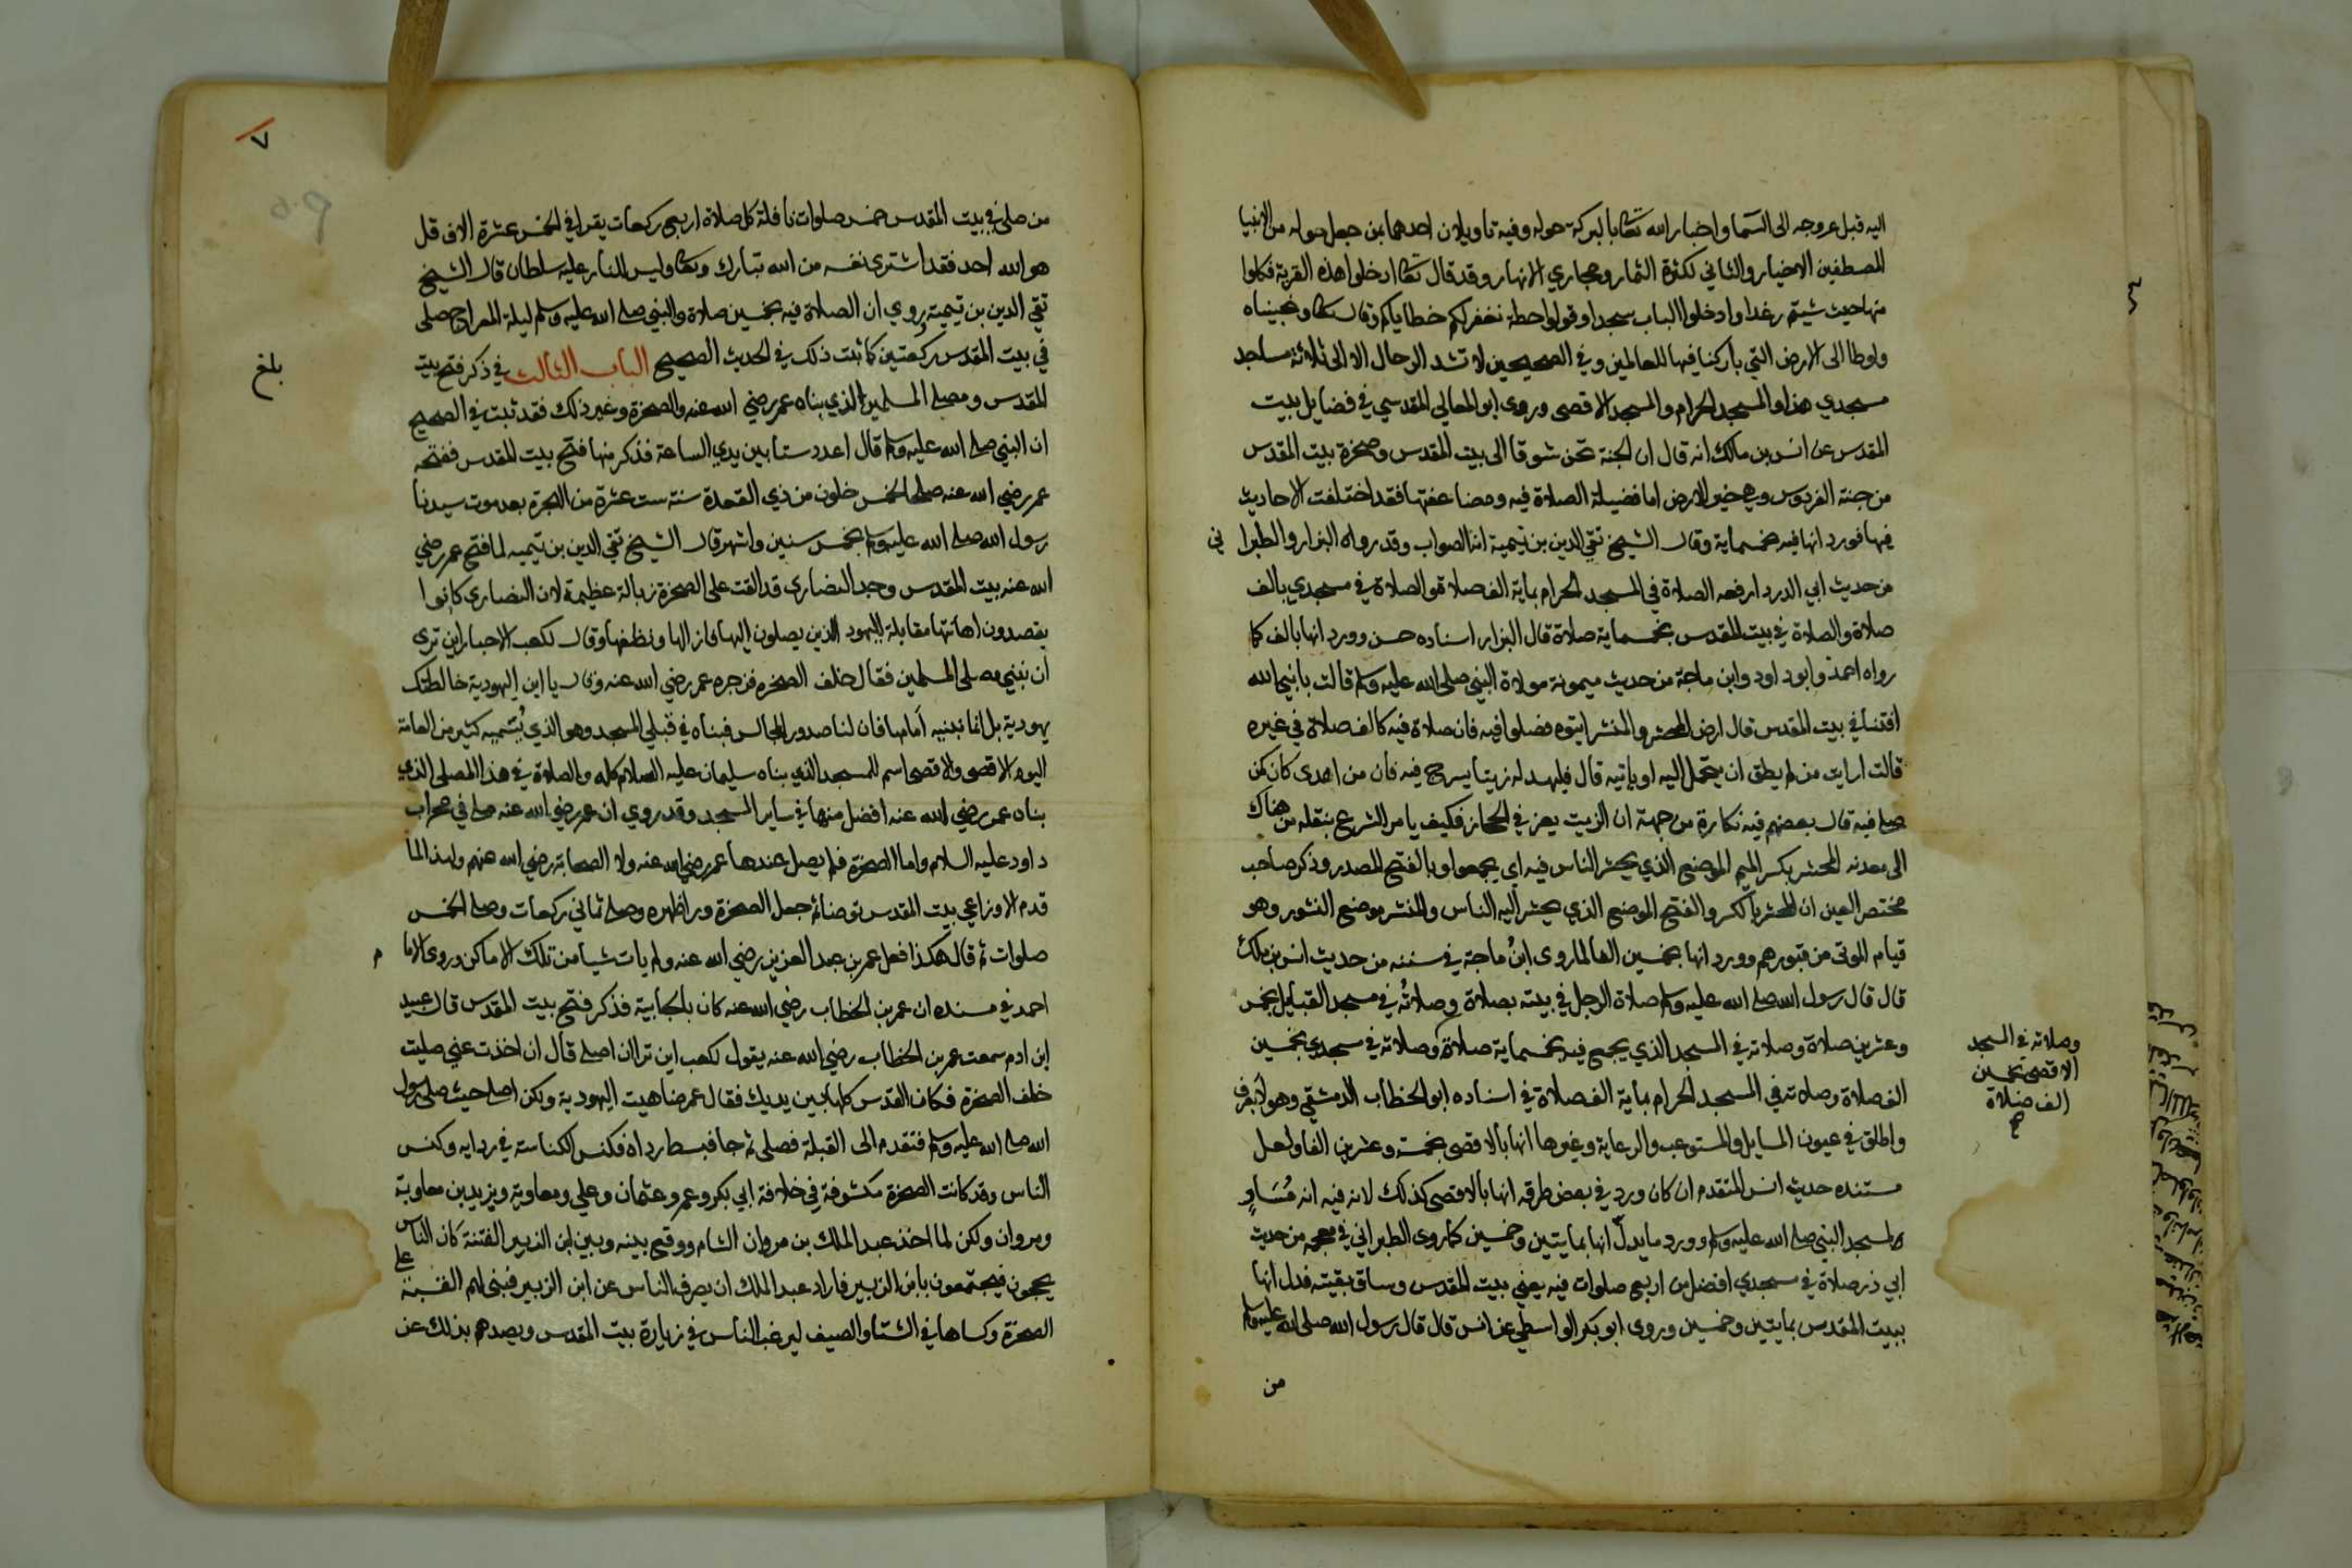 اليه قبل عروجه الى السما واخبار الله تعا بالبركة حوله وفيه تاويلان احدهما بمن جعل حوله من الانبيا
المصطفين الاخيار والثاني لكثرة الثمار ومجاري الانهار وقد قال تعا ادخلوا هذه القرية فكلوا
منها حيث شيتم رغدا وادخلوا الباب سجدا وقولوا حطة نغفر لكم خطاياكم وقال تعا ونجيناه
ولوطا الى الارض التي باركنا فيها للعالمين وفي الصحيحين لا تشد الرحال الا الى ثلاثة مساجد
مسجدي هذا والمسجد الحرام والمسجد الاقصى وروى ابو المعالي المقدسي في فضايل بيت
المقدس عن انس بن مالك انه قال ان الجنة تحن شوقا الى بيت المقدس وصخرة بيت المقدس
من جنة الفردوس وهي خير الارض اما فضيلة الصلاة فيه ومضاعفتها فقد اختلفت الاحاديث
فيها فورد انها فيه خمسماية وقال الشيخ تقي الدين بن تيمية انه الصواب وقد رواه البزار والطبرا ني
من حديث ابي الدردا رفعه الصلاة في المسجد الحرام بماية الف صلاة والصلاة في مسجدي بالف
صلاة والصلاة في بيت المقدس بخمسماية صلاة قال البزار اسناده حسن وورد انها بالف كما
رواه احمد وابو داود وابن ماجة من حديث ميمونة مولاة النبي صلى الله عليه وسلم قالت يا نبي الله
افتنا في بيت المقدس قال ارض المحشر والمنشر ايتوه فصلوا فيه فان صلاة فيه كالف صلاة في غيره
قالت ارايت من لم يطق ان يتحمل اليه او ياتيه قال فليهد له زيتا يسرج فيه فان من اهدى كان كمن
صلى فيه قال بعضهم فيه نكارة من جهة ان الزيت يعز في الحجاز فكيف يامر الشرع بنقله من هناك
الى معدنه المحشر بكسر الميم الموضع الذي يحشر الناس فيه اي يجمعوا وبالفتح المصدر وذكر صاحب
مختصر العين ان المحشر بالكسر والفتح الموضع الذي يحشر اليه الناس والمنشر موضع النشور وهو
قيام الموتى من قبورهم وورد انها بخمسين الفا لما روى ابن ماجة في سننه من حديث انس بن ملك
قال قال رسول الله صلى الله عليه وسلم صلاة الرجل في بيته بصلاة وصلاته في مسجد القبايل بخمس
وعشرين صلاة وصلاته في المسجد الذي يجمع فيه بخمسماية صلاة وصلاته في مسجدي بخمسين
الف صلاة وصلاته في المسجد الحرام بماية الف صلاة في اسناده ابو الخطاب الدمشقي وهو لا يعرف
واطلق في عيون المسايل والمستوعب والرعاية وغيرها انها بالاقصى بخمسة وعشرين الفا ولعل
مستنده حديث انس المتقدم ان كان ورد في بعض طرقه انها بالاقصى كذلك لانه فيه انه مساو
لمسجد النبي صلى الله عليه وسلم وورد ما يدل انها بمايتين وخمسين كما روى الطبراني في معجمه من حديث
ابي ذر صلاة في مسجدي افضل من اربع صلوات فيه يعني بيت المقدس وساق بقيته فدل انها
ببيت المقدس بمايتين وخمسين وروى ابو بكر الواسطي عن انس قال قال رسول الله صلى الله عليه وسلم
من
وصلاته في المسجد
الاقصى بخمسين
الف صلاة
صح
٧
من صلى في بيت المقدس خمس صلوات نافلة كل صلاة اربع ركعات يقرا في الخمس عشرة الاف قل
هو الله احد فقد اشترى نفسه من الله تبارك وتعا وليس للنار عليه سلطان قال الشيخ
تقي الدين بن تيمية روي ان الصلاة فيه بخمسين صلاة والنبي صلى الله عليه وسلم ليلة المعراج صلى
في بيت المقدس ركعتين كما ثبت ذلك في الحديث الصحيح الباب الثالث في ذكر فتح بيت
المقدس ومصلى المسلمين الذي بناه عمر رضي الله عنه والصخرة وغير ذلك فقد ثبت في الصحيح
ان النبي صلى الله عليه وسلم قال اعدد ستا بين يدي الساعة فذكر منها فتح بيت المقدس ففتحه
عمر رضي الله عنه صلحا لخمس خلون من ذي القعدة سنة ست عشرة من الهجرة بعد موت سيدنا
رسول الله صلى الله عليه وسلم بخمس سنين واشهر قال الشيخ تقي الدين بن تيميه لما فتح عمر رضي
الله عنه بيت المقدس وجد النصارى قد القت على الصخرة زبالة عظيمة لان النصارى كانوا
يقصدون اهانتها مقابلة لليهود الذين يصلون اليها فازالها ونظفها وقال لكعب الاحبار اين ترى
ان نبني مصلى المسلمين فقال خلف الصخره فزجره عمر رضي الله عنه وقال يا ابن اليهودية خالطتك
يهودية بل انما نبنيه أمامها فان لنا صدور المجالس فبناه في قبلي المسجد وهو الذي يُسميه كثير من العامة
اليوم الاقصى والاقصى اسم للمسجد الذي بناه سليمان عليه السلام كله والصلاة في هذا المصلى الذي
بناه عمر رضي الله عنه افضل منها في ساير المسجد وقد روي ان عمر رضي الله عنه صلى في محراب
داود عليه السلام واما الصخرة فلم يصل عندها عمر رضي الله عنه ولا الصحابة رضي الله عنهم ولهذا لما
قدم الاوزاعي بيت المقدس توضا ثم جعل الصخرة ورا ظهره وصلى ثماني ركعات وصلى الخمس
صلوات ثم قال هكذا فعل عمر بن عبد العزيز رضي الله عنه ولم يات شيا من تلك الاماكن وروى الاما م
احمد في مسنده ان عمر بن الخطاب رضي الله عنه كان بالجابية فذكر فتح بيت المقدس قال عبيد
ابن ادم سمعت عمر بن الخطاب رضي الله عنه يقول لكعب اين ترا ان اصلي قال ان اخذت عني صليت
خلف الصخرة فكانت القدس كلها بين يديك فقال عمر ضاهيت اليهودية ولكن اصلي حيث صلى رسول
الله صلى الله عليه وسلم فتقدم الى القبلة فصلى ثم جا فبسط رداه فكنس الكناسة في ردايه وكنس
الناس وقد كانت الصخرة مكشوفة في خلافة ابي بكر وعمر وعثمان وعلي ومعاوية ويزيد بن معاوية
ومروان ولكن لما اخذ عبد الملك بن مروان الشام ووقع بينه وبين ابن الزبير الفتنة كان الناس
يحجون فيجتمعون بابن الزبير فاراد عبد الملك ان يصرف الناس عن ابن الزبير فبنى لهم القبة على
الصخرة وكساها في الشتا والصيف ليرغب الناس في زيارة بيت المقدس ويصدهم بذلك عن
بلغ